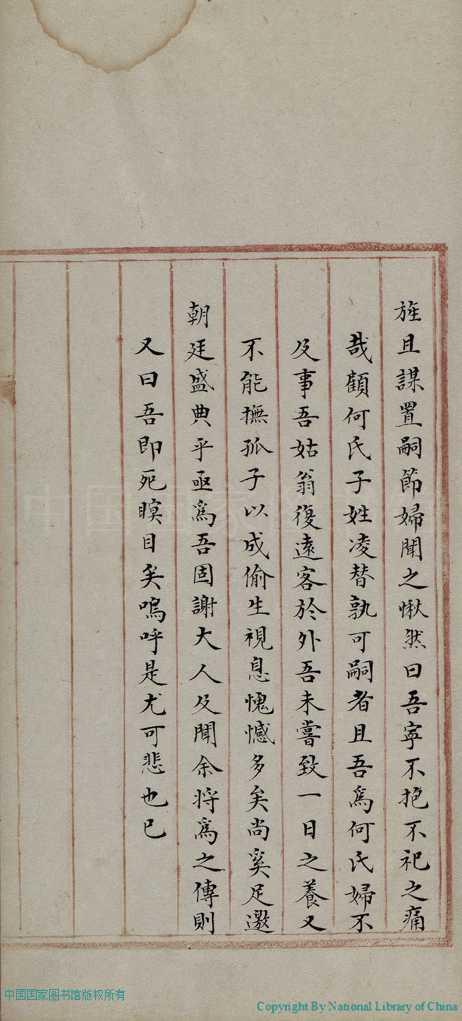 旌且謀置嗣節婦聞之愀然曰吾寧不抱不祀之痛
哉顧何氏子姓凌替孰可嗣者且吾爲何氏婦不
及事吾姑翁復遠客於外吾未嘗致一日之養又
不能撫孤子以成偷生視息愧憾多矣尚奚足邀
朝廷盛典乎亟爲吾固謝大人及聞余将爲之傳則
又曰吾即死瞑目矣嗚呼是尤可悲也已
中国国家图书馆版权所有
Copyright By National Library of China